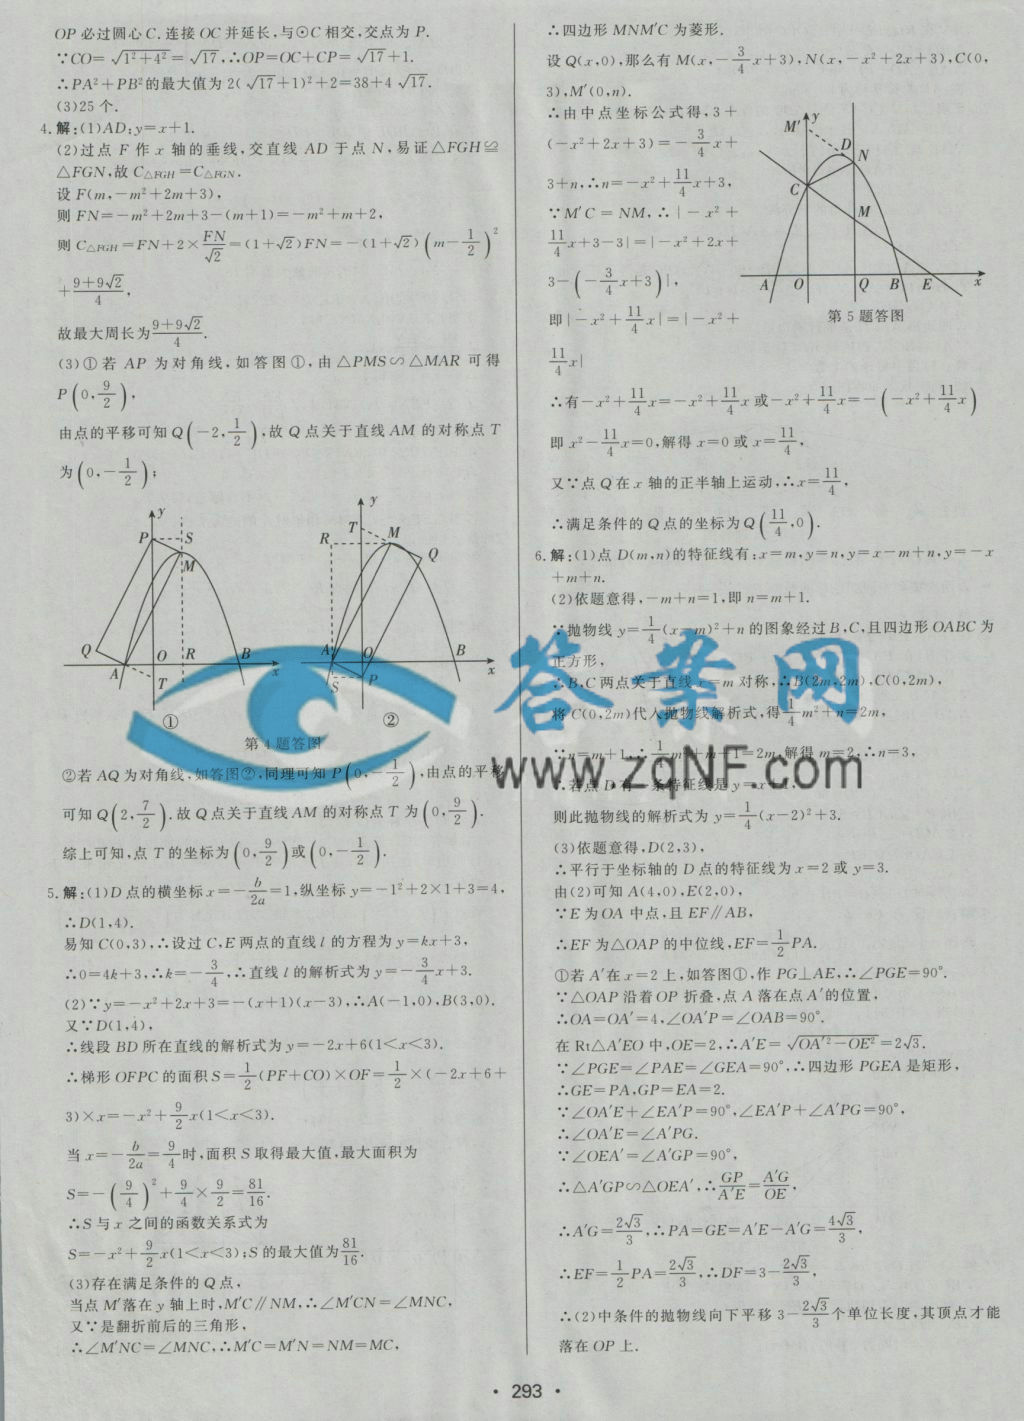 OP 必过圆心 C. 连接 OC 并延长,与⊙C 相交,交点为 P.
∵CO=√(1²+4²)=√17,∴OP=OC+CP=√17+1.
∴PA²+PB²的最大值为 2(√17+1)²+2=38+4√17.
(3)25 个.
4. 解:(1)AD:y=x+1.
(2)过点 F 作 x 轴的垂线,交直线 AD 于点 N,易证△FGH≌
△FGN,故 C△FGH=C△FGN.
设 F(m,-m²+2m+3),
则 FN=-m²+2m+3-(m+1)=-m²+m+2,
则 C△FGH=FN+2×FN/√2=(1+√2)FN=-(1+√2)(m-1/2)²
+(9+9√2)/4,
故最大周长为(9+9√2)/4.
(3)①若 AP 为对角线,如答图①,由△PMS∽△MAR 可得
P(0,9/2),
由点的平移可知 Q(-2,1/2),故 Q 点关于直线 AM 的对称点 T
为(0,-1/2);
y P S M Q A O R B x T ①
y T M R Q A O B x S P ②
第 4 题答图
②若 AQ 为对角线,如答图②,同理可知 P(0,-1/2),由点的平移
可知 Q(2,7/2).故 Q 点关于直线 AM 的对称点 T 为(0,9/2).
综上可知,点 T 的坐标为(0,9/2)或(0,-1/2).
5. 解:(1)D 点的横坐标 x=-b/2a=1,纵坐标 y=-1²+2×1+3=4,
∴D(1,4).
易知 C(0,3),∴设过 C,E 两点的直线 l 的方程为 y=kx+3,
∴0=4k+3,∴k=-3/4,∴直线 l 的解析式为 y=-3/4x+3.
(2)∵y=-x²+2x+3=-(x+1)(x-3),∴A(-1,0),B(3,0).
又∵D(1,4),
∴线段 BD 所在直线的解析式为 y=-2x+6(1<x<3).
∴梯形 OFPC 的面积 S=1/2(PF+CO)×OF=1/2×(-2x+6+
3)×x=-x²+9/2x(1<x<3).
当 x=-b/2a=9/4时,面积 S 取得最大值,最大面积为
S=-(9/4)²+9/4×9/2=81/16.
∴S 与 x 之间的函数关系式为
S=-x²+9/2x(1<x<3);S 的最大值为81/16.
(3)存在满足条件的 Q 点,
当点 M′落在 y 轴上时,M′C∥NM,∴∠M′CN=∠MNC,
又∵是翻折前后的三角形,
∴∠M′NC=∠MNC,∴M′C=M′N=NM=MC,
∴四边形 MNM′C 为菱形.
设 Q(x,0),那么有 M(x,-3/4x+3),N(x,-x²+2x+3),C(0,
3),M′(0,n).
∴由中点坐标公式得,3+
(-x²+2x+3)=-3/4x+
3+n,∴n=-x²+11/4x+3,
∵M′C=NM,∴|-x²+
11/4x+3-3|=|-x²+2x+
3-(-3/4x+3)|,
即|-x²+11/4x|=|-x²+
11/4x|
y M′ D N C M A O Q B E x
第 5 题答图
∴有-x²+11/4x=-x²+11/4x或-x²+11/4x=-(-x²+11/4x)
即 x²-11/4x=0,解得 x=0 或 x=11/4,
又∵点 Q 在 x 轴的正半轴上运动,∴x=11/4,
∴满足条件的 Q 点的坐标为 Q(11/4,0).
6. 解:(1)点 D(m,n)的特征线有:x=m,y=n,y=x-m+n,y=-x
+m+n.
(2)依题意得,-m+n=1,即 n=m+1.
∵抛物线 y=1/4(x-m)²+n 的图象经过 B,C,且四边形 OABC 为
正方形,
∴B,C 两点关于直线 x=m 对称,∴B(2m,2m),C(0,2m),
将 C(0,2m)代入抛物线解析式,得1/4m²+n=2m,
∵n=m+1,∴1/4m²+m+1=2m,解得 m=2,∴n=3,
∴若点 D 有一条特征线是 y=x+1,
则此抛物线的解析式为 y=1/4(x-2)²+3.
(3)依题意得,D(2,3),
∴平行于坐标轴的 D 点的特征线为 x=2 或 y=3.
由(2)可知 A(4,0),E(2,0),
∵E 为 OA 中点,且 EF∥AB,
∴EF 为△OAP 的中位线,EF=1/2PA.
①若 A′在 x=2 上,如答图①,作 PG⊥AE,∴∠PGE=90°.
∵△OAP 沿着 OP 折叠,点 A 落在点 A′的位置,
∴OA=OA′=4,∠OA′P=∠OAB=90°.
在 Rt△A′EO 中,OE=2,∴A′E=√(OA′²-OE²)=2√3.
∵∠PGE=∠PAE=∠GEA=90°,∴四边形 PGEA 是矩形,
∴GE=PA,GP=EA=2.
∵∠OA′E+∠EA′P=90°,∠EA′P+∠A′PG=90°,
∴∠OA′E=∠A′PG.
∵∠OEA′=∠A′GP=90°,
∴△A′GP∽△OEA′,∴GP/A′E=A′G/OE,
∴A′G=2√3/3,∴PA=GE=A′E-A′G=4√3/3,
∴EF=1/2PA=2√3/3,∴DF=3-2√3/3,
∴(2)中条件的抛物线向下平移 3-2√3/3个单位长度,其顶点才能
落在 OP 上.
答案网
www.zqNF.com
• 293 •